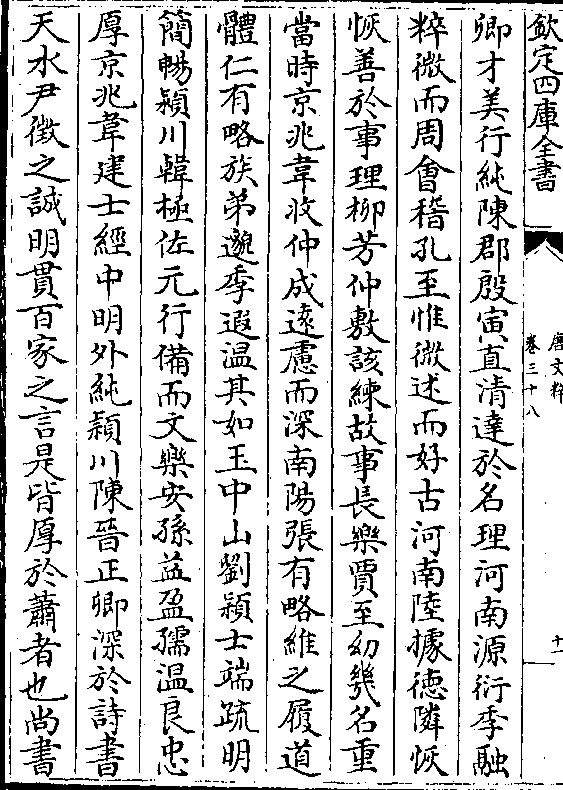 欽定四庫全書
唐文粹
卷三十八
十一
卿才美行純陳郡殷寅直清達於名理河南源衍季融
粹微而周會稽孔至惟微述而好古河南陸據德隣恢
恢善於事理柳芳仲敷該練故事長樂賈至幼㡬名重
當時京兆韋收仲成遠慮而深南陽張有略維之履道
體仁有略族弟邈季遐溫其如玉中山劉頴士端疏明
簡暢潁川韓極佐元行備而文樂安孫益盈孺溫良忠
厚京兆韋建士經中明外純潁川陳晉正卿深於詩書
天水尹徵之誠明貫百家之言是皆厚於蕭者也尚書